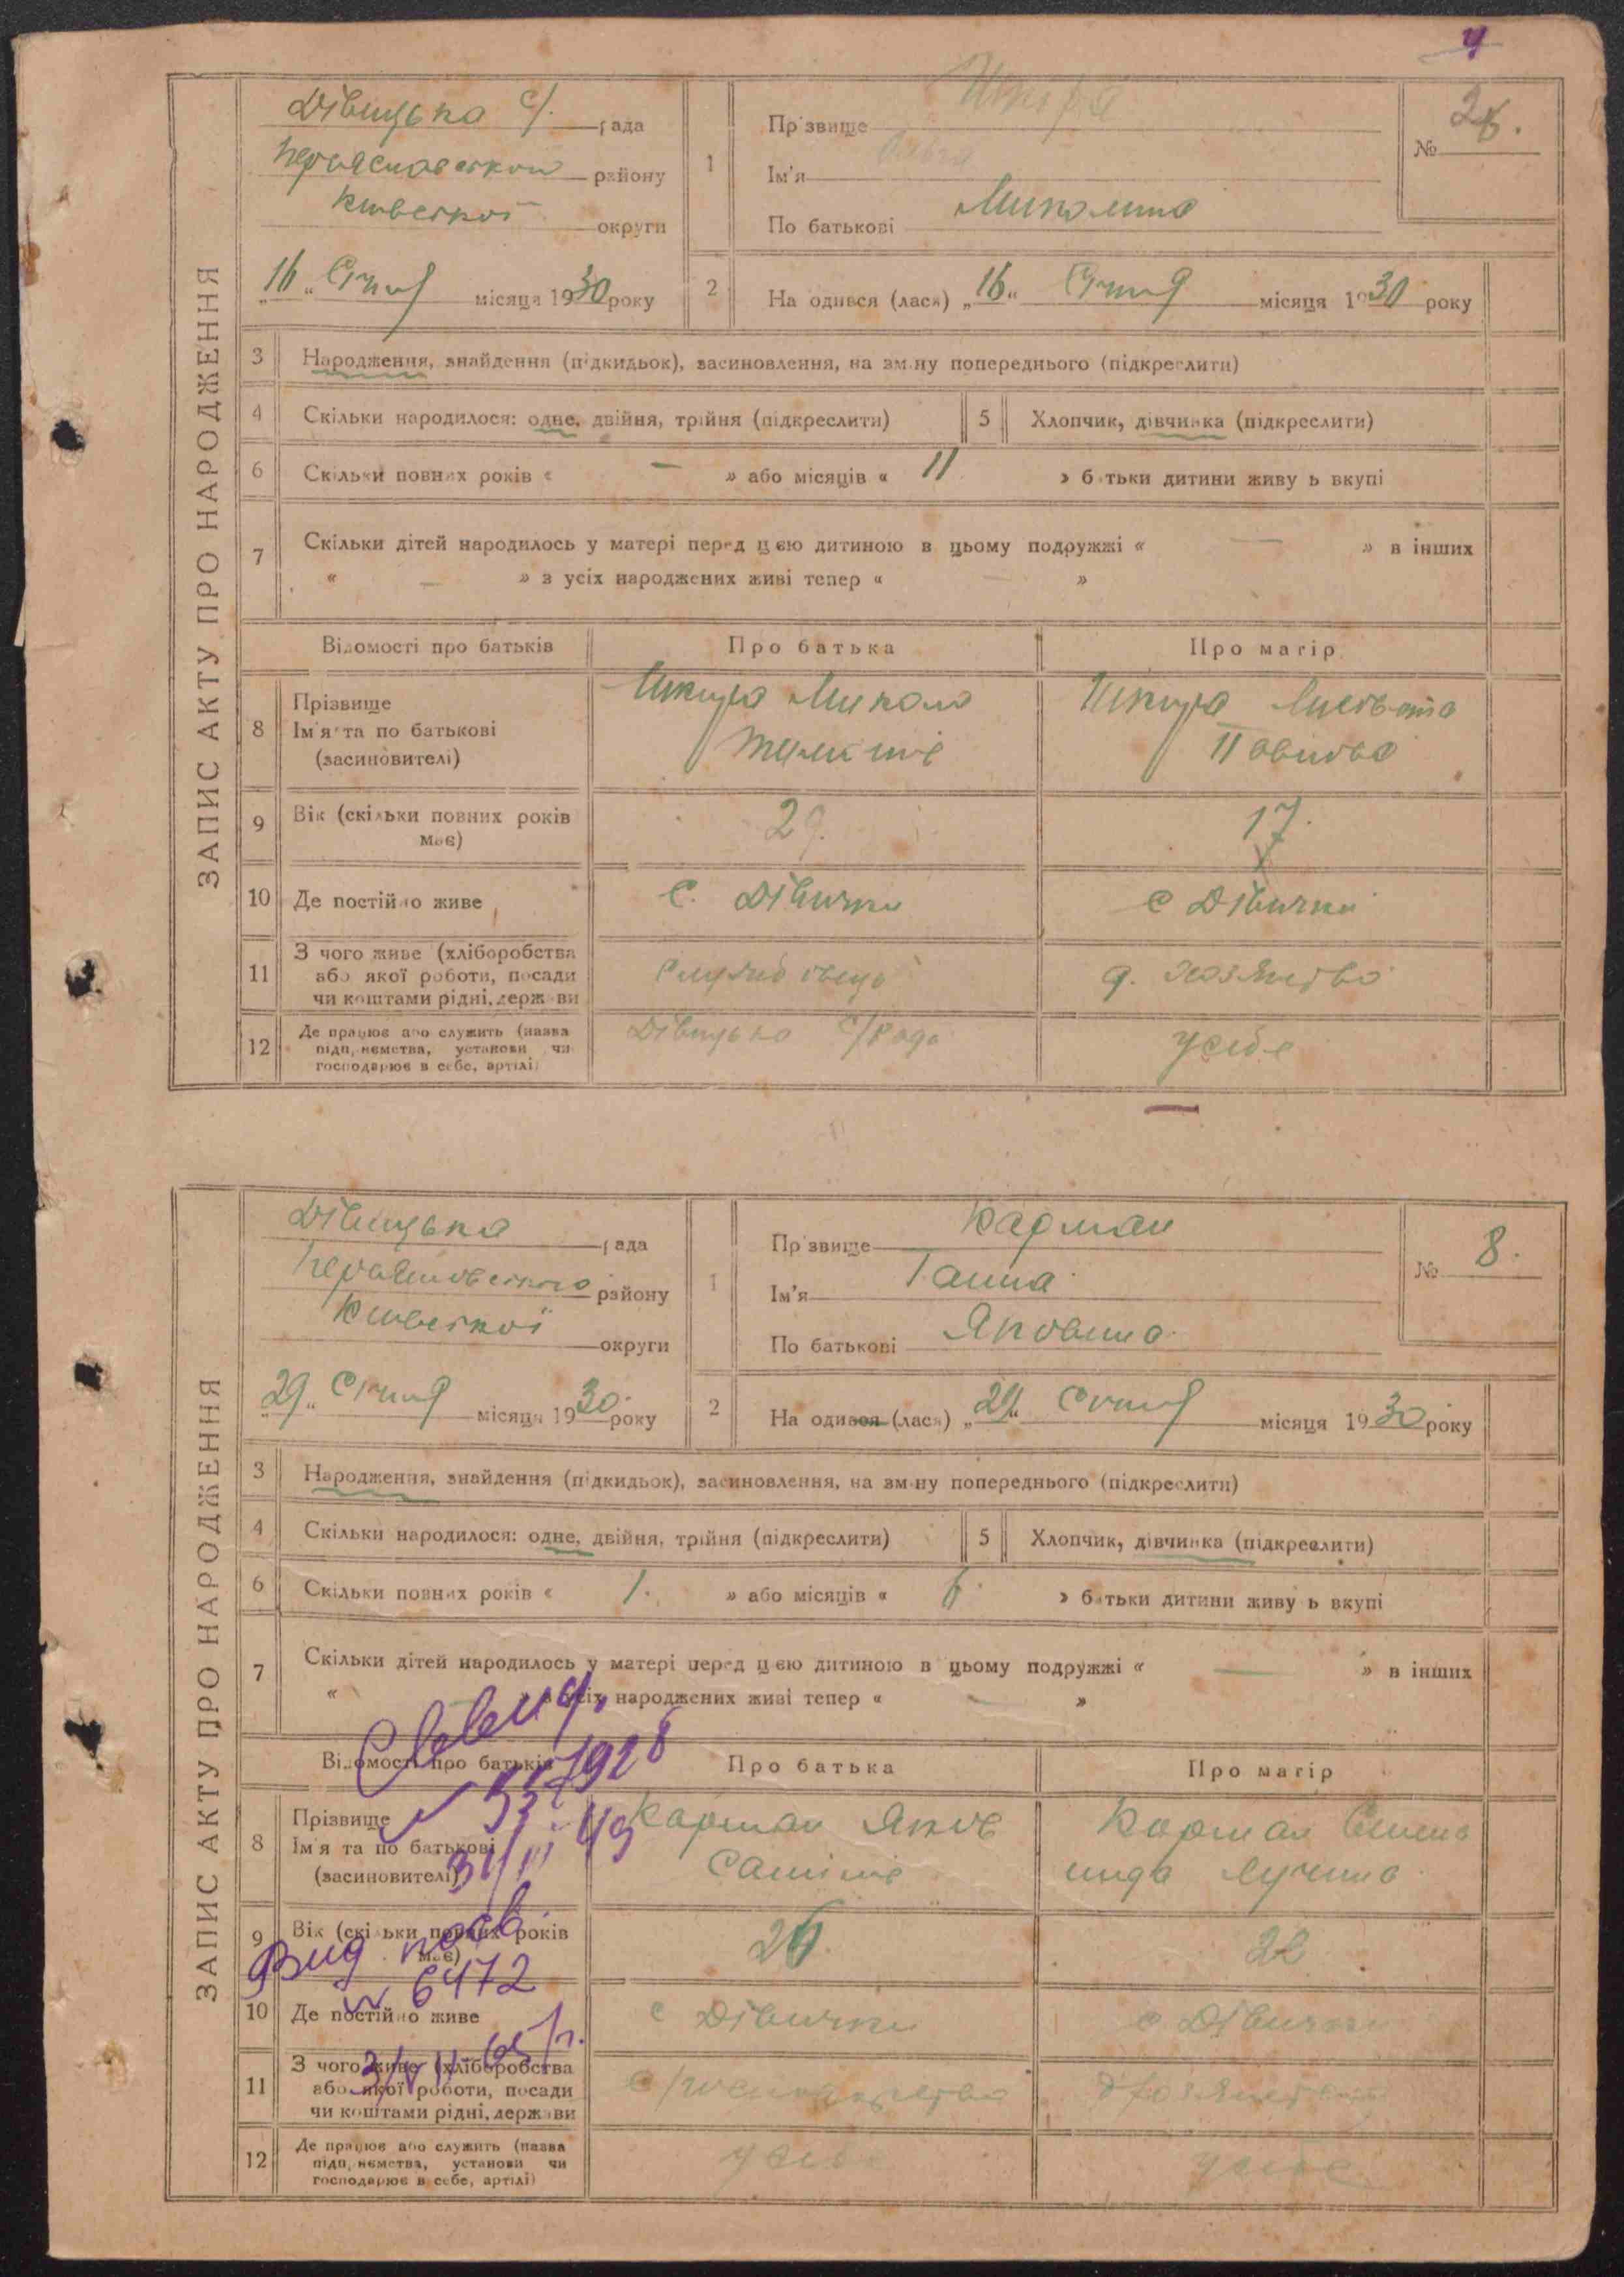 4
ЗАПИС АКТУ ПРО НАРОДЖЕННЯ
Дівицька с/. рада
району
Київської округи
„16“ Січня місяця 1930 року
1
Прізвище Шкура
Ім'я
По батькові Миколина
№
2
На одився (лася) „16“ Січня місяця 1930 року
3 Народження, знайдення (підкидьок), засиновлення, на зміну попереднього (підкреслити)
4 Скільки народилося: одне, двійня, трійня (підкреслити) 5 Хлопчик, дівчинка (підкреслити)
6 Скільки повних років « — » або місяців « 11 » батьки дитини живуть вкупі
7 Скільки дітей народилось у матері перед цією дитиною в цьому подружжі « — » в інших
« — » з усіх народжених живі тепер « — »
Відомості про батьків Про батька Про матір
8 Прізвище Ім'я та по батькові (засиновителі)
Шкура Микола
Шкура
9 Вік (скільки повних років має) 29. 17.
10 Де постійно живе с. Дівички с Дівички
11 З чого живе (хліборобства або якої роботи, посади чи коштами рідні, держави
службовець д. хозяйство
12 Де працює або служить (назва підприємства, установи чи господарює в себе, артілі)
Дівицька с/рада у себе
ЗАПИС АКТУ ПРО НАРОДЖЕННЯ
Дівицька рада
району
Київської округи
„29“ Січня місяця 1930 року
1
Прізвище Карман
Ім'я Ганна
По батькові Яковина
№ 8.
2
На одився (лася) „29“ Січня місяця 1930 року
3 Народження, знайдення (підкидьок), засиновлення, на зміну попереднього (підкреслити)
4 Скільки народилося: одне, двійня, трійня (підкреслити) 5 Хлопчик, дівчинка (підкреслити)
6 Скільки повних років « 1. » або місяців « 6 » батьки дитини живуть вкупі
7 Скільки дітей народилось у матері перед цією дитиною в цьому подружжі « — » в інших
« » з усіх народжених живі тепер « — »
Відомості про батьків Про батька Про матір
8 Прізвище Ім'я та по батькові (засиновителі)
Карман Яків
Карман
9 Вік (скільки повних років має) 26. 22
Вид. 
№ 6472
10 Де постійно живе с Дівички с Дівички
11 З чого живе (хліборобства або якої роботи, посади чи коштами рідні, держави
с/господарство
12 Де працює або служить (назва підприємства, установи чи господарює в себе, артілі)
у себе у себе